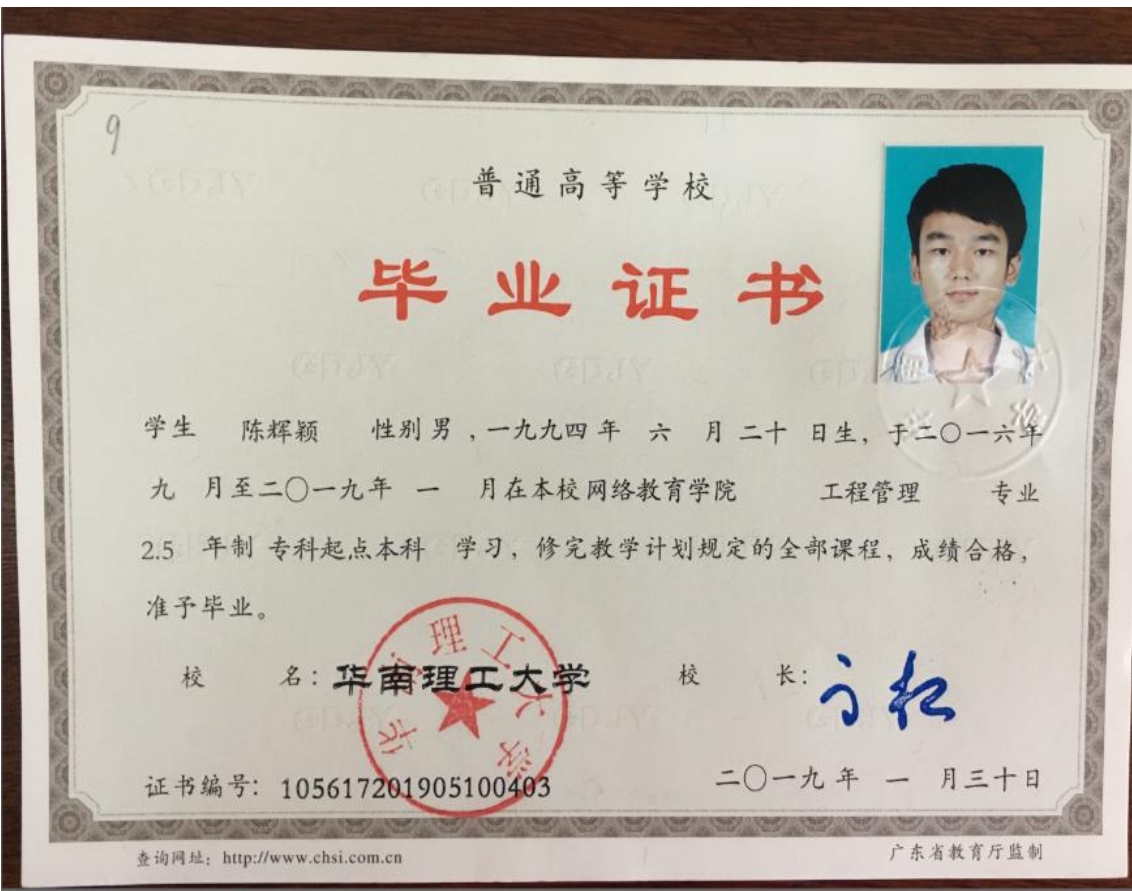 9
普通高等学校
毕业证书
学生 陈辉颖 性别 男 ,一九九四 年 六 月 二十 日生, 于二〇一六年
九 月至二〇一九年 一 月在本校网络教育学院 工程管理 专业
2.5 年制 专科起点本科 学习, 修完教学计划规定的全部课程, 成绩合格,
准予毕业。
校 名: 华南理工大学 校 长:
华南理工大学
证书编号: 105617201905100403 二〇一九 年 一 月三十日
查询网址: http://www.chsi.com.cn 广东省教育厅监制